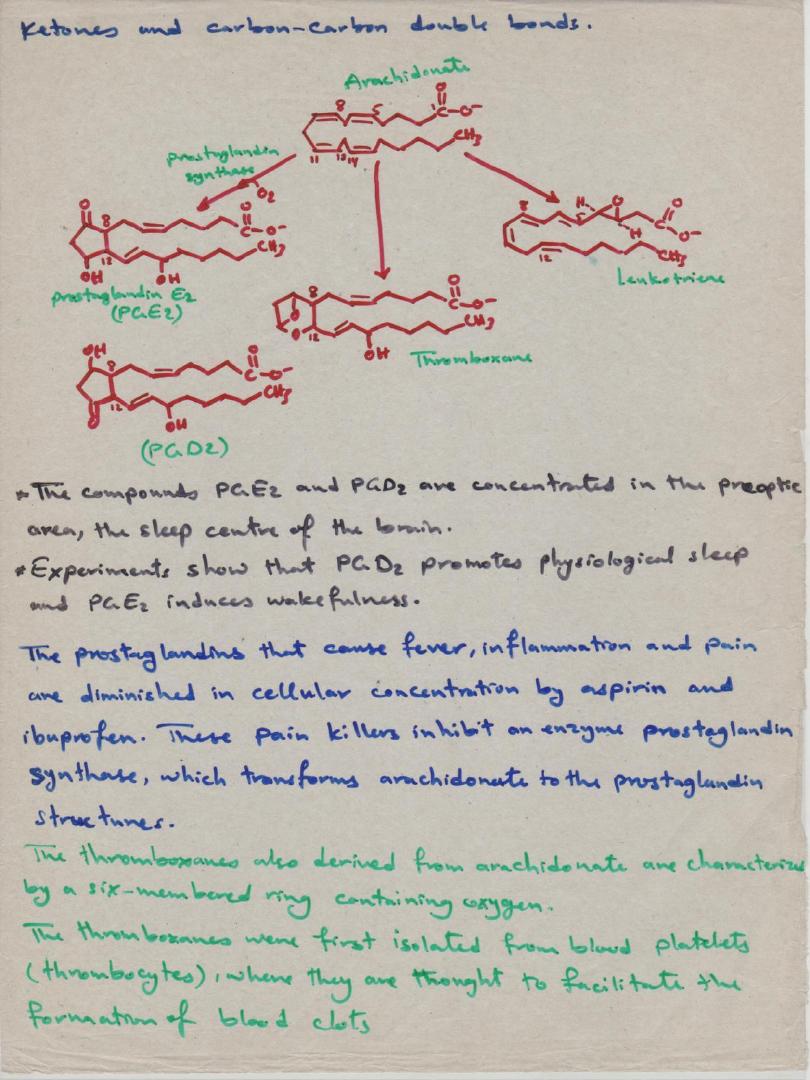 Ketones and carbon-carbon double bonds.
Arachidonate
8 5 C O O-
CH3
11 12 14
prostaglandin
synthase
O2
O 8 O C-O-
12 CH3
OH OH
prostaglandin E2
(PGE2)
8 H O O C O-
5 H
12 CH3
Leukotriene
O 8 O C-O-
O 12 CH3
OH
Thromboxane
OH 8 O C-O-
12 CH3
O OH
(PGD2)
* The compounds PGE2 and PGD2 are concentrated in the preoptic
area, the sleep centre of the brain.
* Experiments show that PGD2 promotes physiological sleep
and PGE2 induces wakefulness.
The prostaglandins that cause fever, inflammation and pain
are diminished in cellular concentration by aspirin and
ibuprofen. These pain killers inhibit an enzyme prostaglandin
synthase, which transforms arachidonate to the prostaglandin
structures.
The thromboxanes also derived from arachidonate are characterize
by a six-membered ring containing oxygen.
The thromboxanes were first isolated from blood platelets
(thrombocytes), where they are thought to facilitate the
formation of blood clots